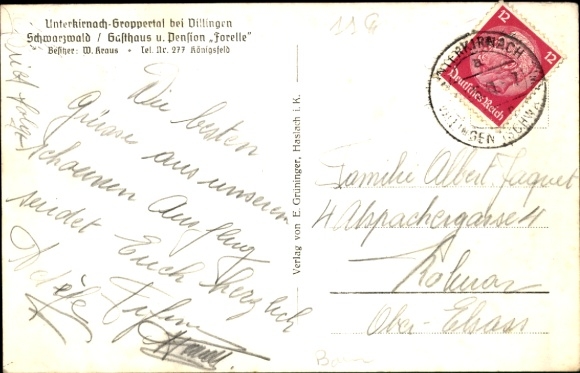 Unterkirnach-Groppertal bei Villingen
Schwarzwald / Gasthaus u. Pension „Forelle"
Besitzer: W. Kraus • Tel. Nr. 277 Königsfeld
Die besten
Grüsse aus unserem
schoenen Ausflug
sendet Euch herzlich
Verlag von E. Grüninger, Haslach i. K.
11
12
12
Deutsches Reich
UNTERKIRNACH
VILLINGEN (SCHWARZW)
Familie Albert Jaquet
4 Alspachergasse 4
Kolmar
Ober-Elsass